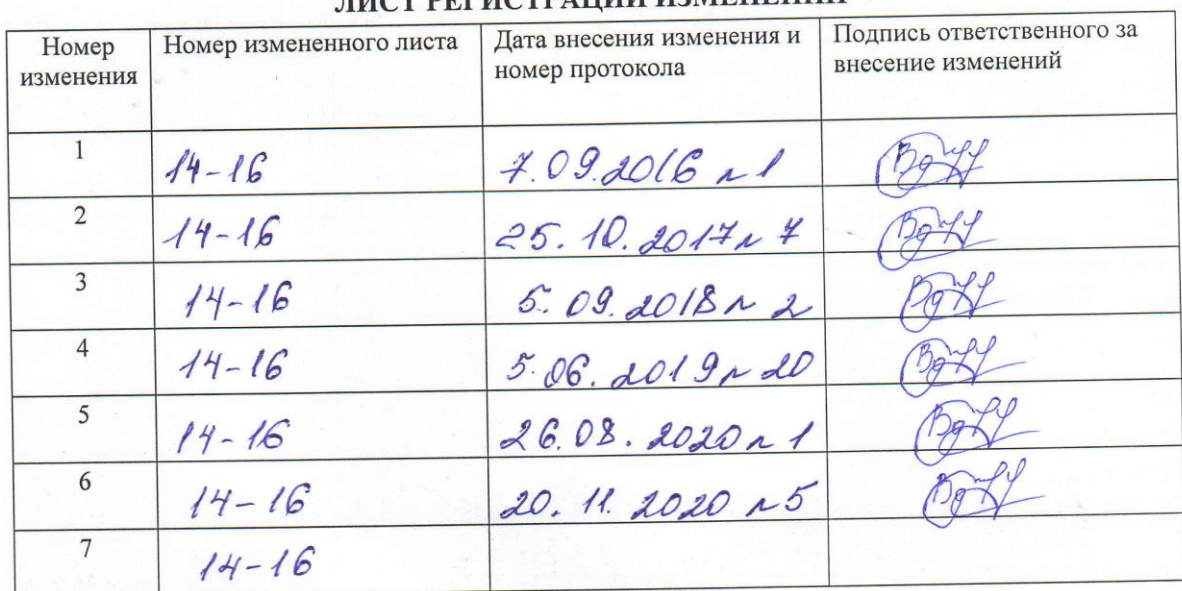 ЛИСТ РЕГИСТРАЦИИ ИЗМЕНЕНИЙ
Номер изменения
Номер измененного листа
Дата внесения изменения и номер протокола
Подпись ответственного за внесение изменений
1 14-16 7.09.2016 n 1
2 14-16 25.10.2017 n 7
3 14-16 5.09.2018 n 2
4 14-16 5.06.2019 n 20
5 14-16 26.08.2020 n 1
6 14-16 20.11.2020 n 5
7 14-16